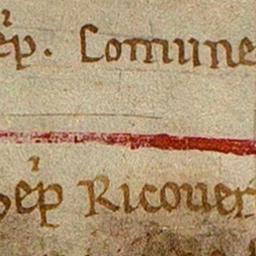 ep. Comune
Sep Ricouer